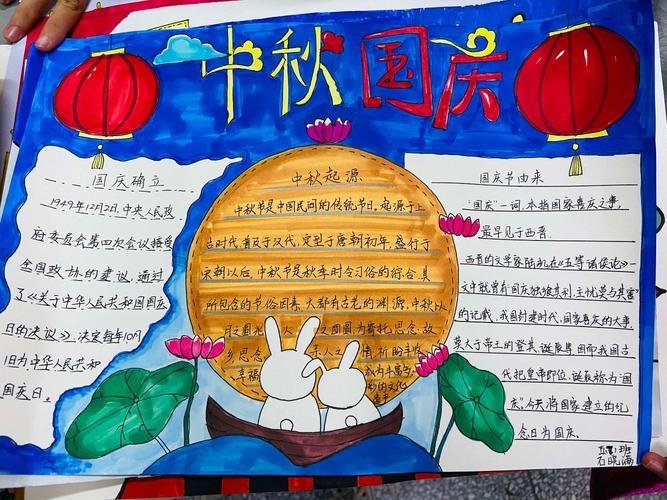 中秋国庆
国庆确立
1949年12月2日,中央人民政
府委员会第四次会议接受
全国政协的建议,通过
了《关于中华人民共和国国庆
日的决议》,决定每年10月
1日为中华人民共和
国庆日。
中秋起源
中秋节是中国民间的传统节日,起源于上
古时代,普及于汉代,定型于唐朝初年,盛行于
宋朝以后,中秋节是秋季时令习俗的综合,其
所包含的节俗因素,大都有古老的渊源,中秋以
月之圆兆人 圆为寄托思念故
乡思念 亲人之 情,祈盼丰收
幸福 成为丰富多
的文化
国庆节由来
“国庆”一词,本指国家喜庆之事,
最早见于西晋。
西晋的文学家陆机在《五等诸侯论》一
文中就曾有国庆独飨其利,主忧莫与其害”
的记载、我国封建时代、国家喜庆的大事,
莫大于帝王的登基、诞辰等因而我国古
代把皇帝即位、诞辰称为“国
庆”,今天将国家建立的纪
念日为国庆。
班
石晓涵